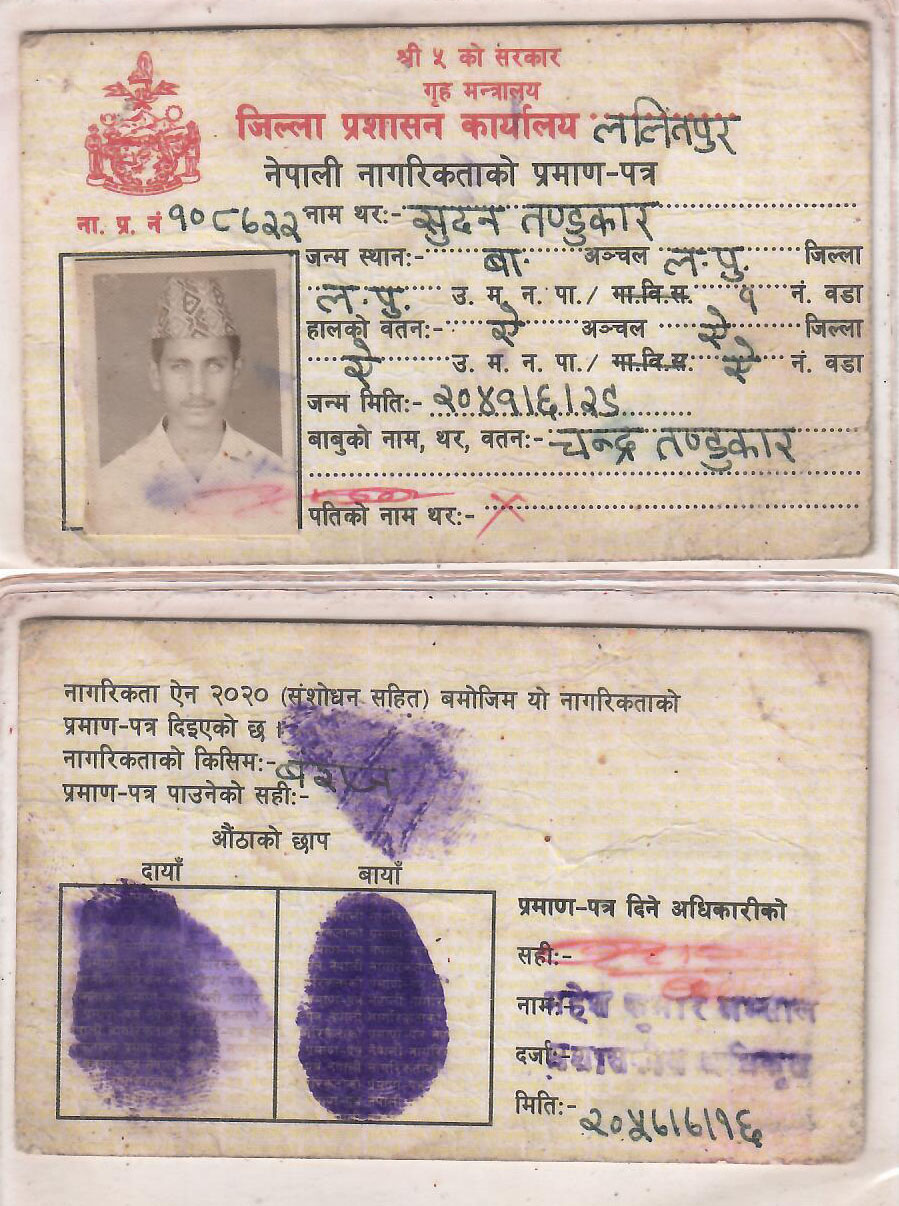 श्री ५ को सरकार
गृह मन्त्रालय
जिल्ला प्रशासन कार्यालय ललितपुर
नेपाली नागरिकताको प्रमाण-पत्र
ना. प्र. नं १०८६२२ नाम थर:- सुदन तण्डुकार
जन्म स्थान:- बा. अञ्चल ल.पु. जिल्ला
ल.पु. उ. म. न. पा./ गा.वि.स. १ नं. वडा
हालको वतन:- ऐ अञ्चल ऐ जिल्ला
ऐ उ. म. न. पा./ गा.वि.स. ऐ नं. वडा
जन्म मिति:- २०४१।६।२८
बाबुको नाम, थर, वतन:- चन्द्र तण्डुकार
पतिको नाम थर:- X
नागरिकता ऐन २०२० (संशोधन सहित) बमोजिम यो नागरिकताको
प्रमाण-पत्र दिइएको छ ।
नागरिकताको किसिम:- वंशज
प्रमाण-पत्र पाउनेको सही:-
औंठाको छाप
दायाँ बायाँ
प्रमाण-पत्र दिने अधिकारीको
सही:-
नाम:- कुमार
दर्जा:-
मिति:- २०५८।८।१६